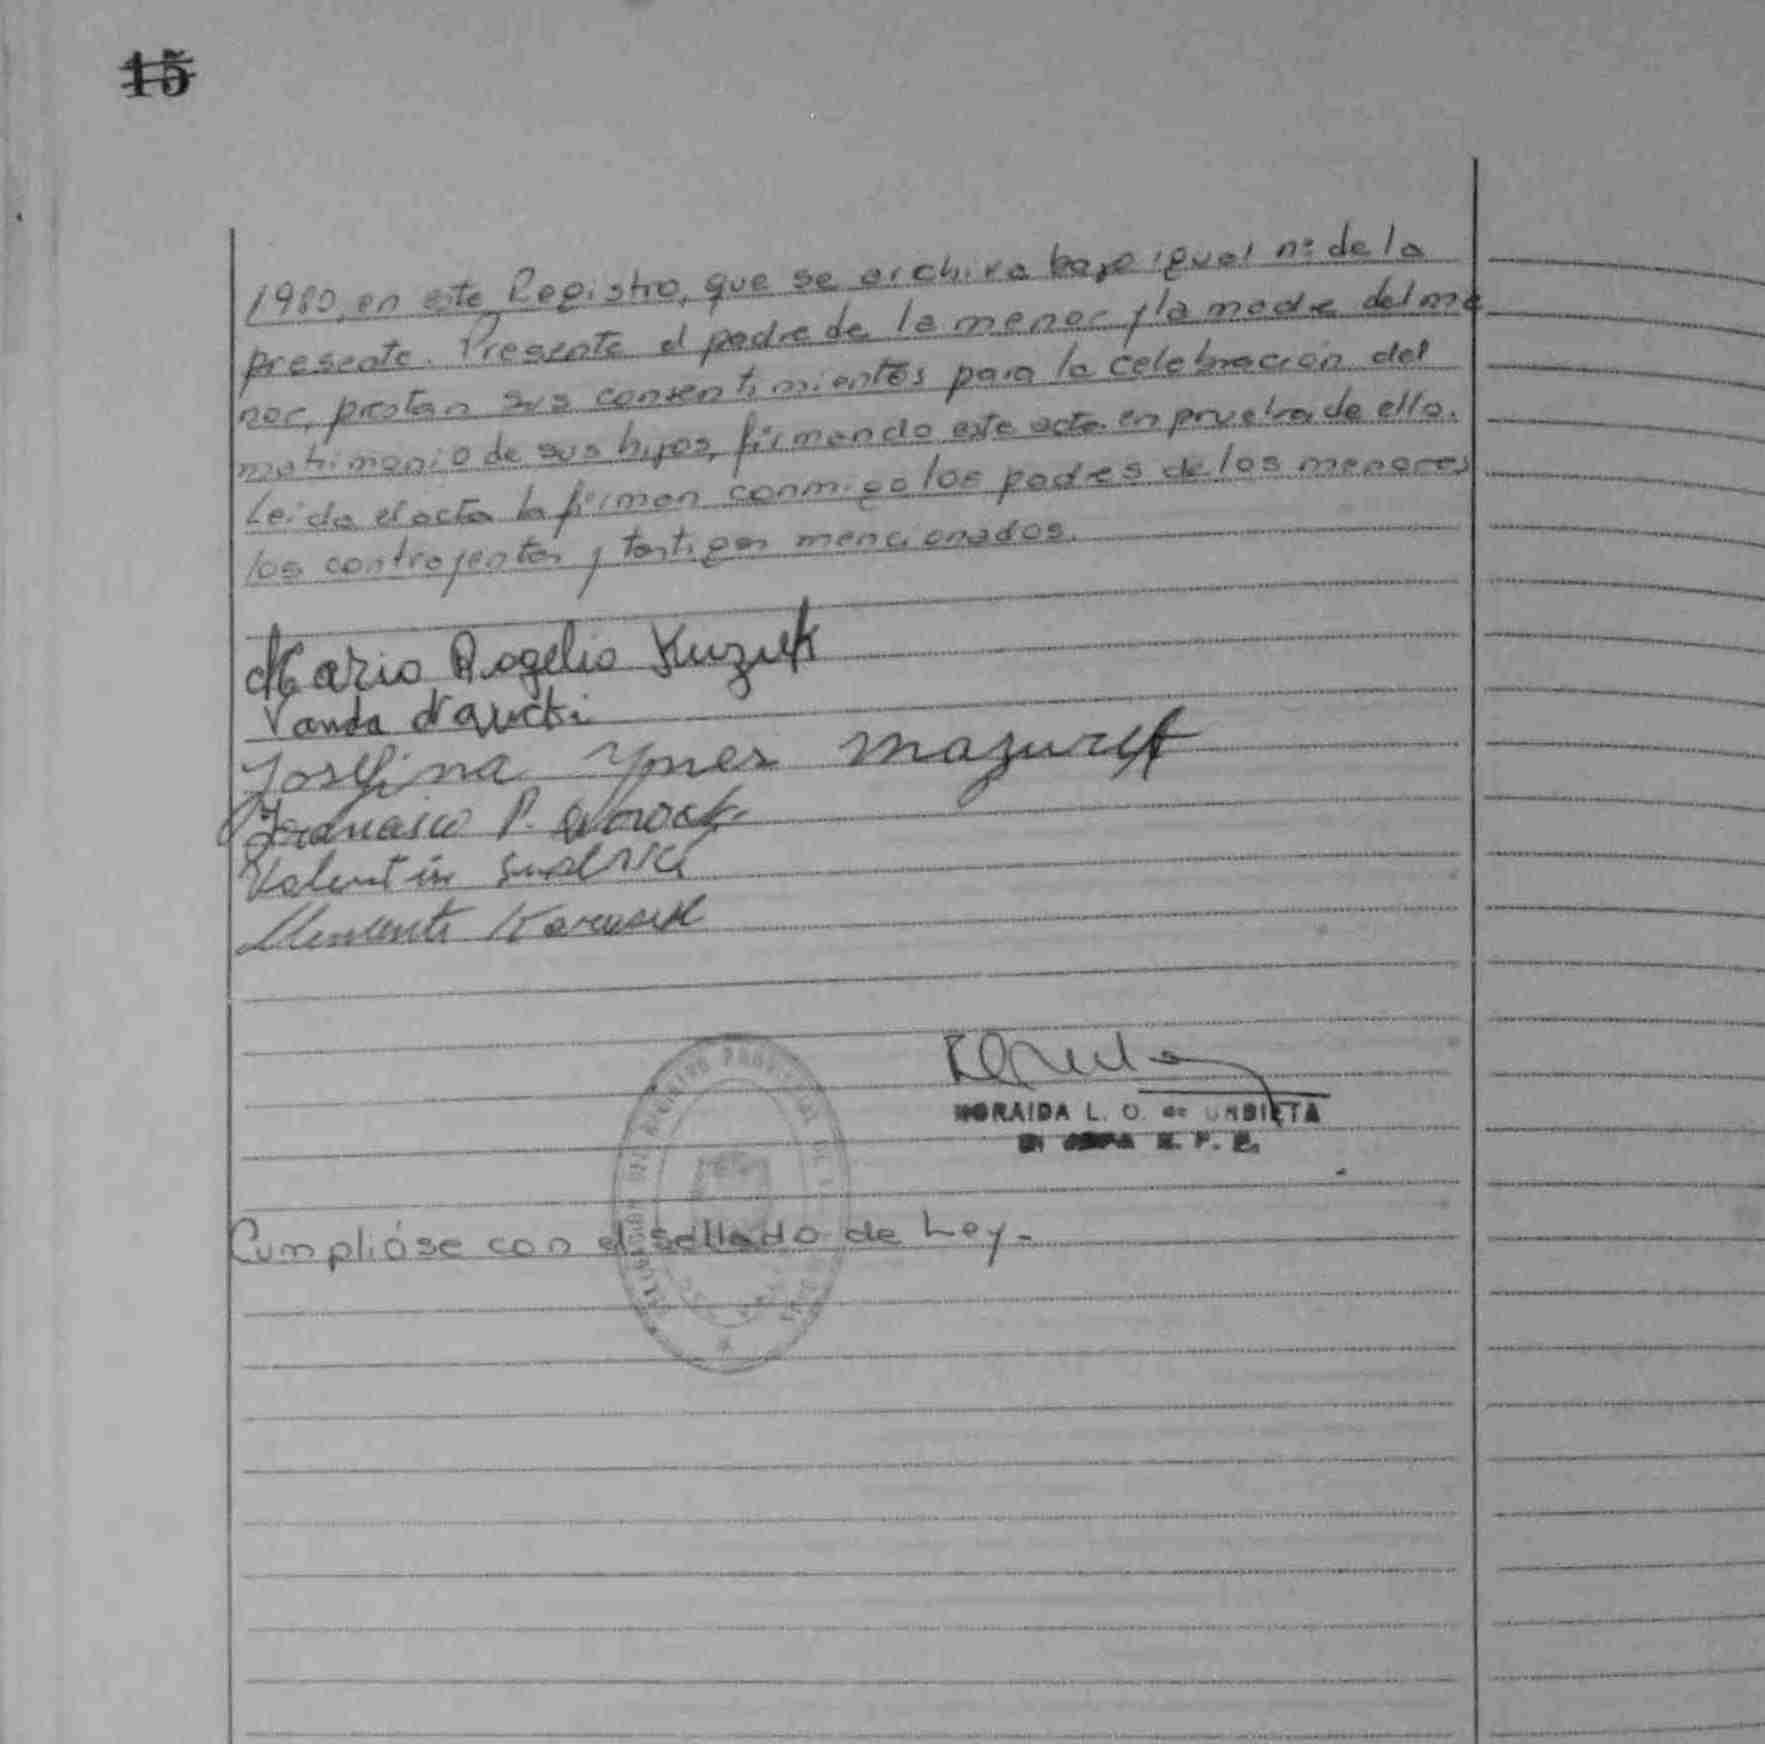 15
1980, en este Registro, que se archiva bajo igual nº de la
presente. Presente el padre de la menor y la madre del me
nor, prestan sus consentimientos para la celebración del
matrimonio de sus hijos, firmando este acta en prueba de ello.
Leida el acta la firman conmigo los padres de los menores
los contrayentes y testigos mencionados.
Mario Rogelio Kuzuk
Vanda
Josefina Ynes Mazurek
Francisco P.
Valentin
Clemente
NORAIDA L. O. de URBIETA
Cumplióse con el sellado de Ley.-